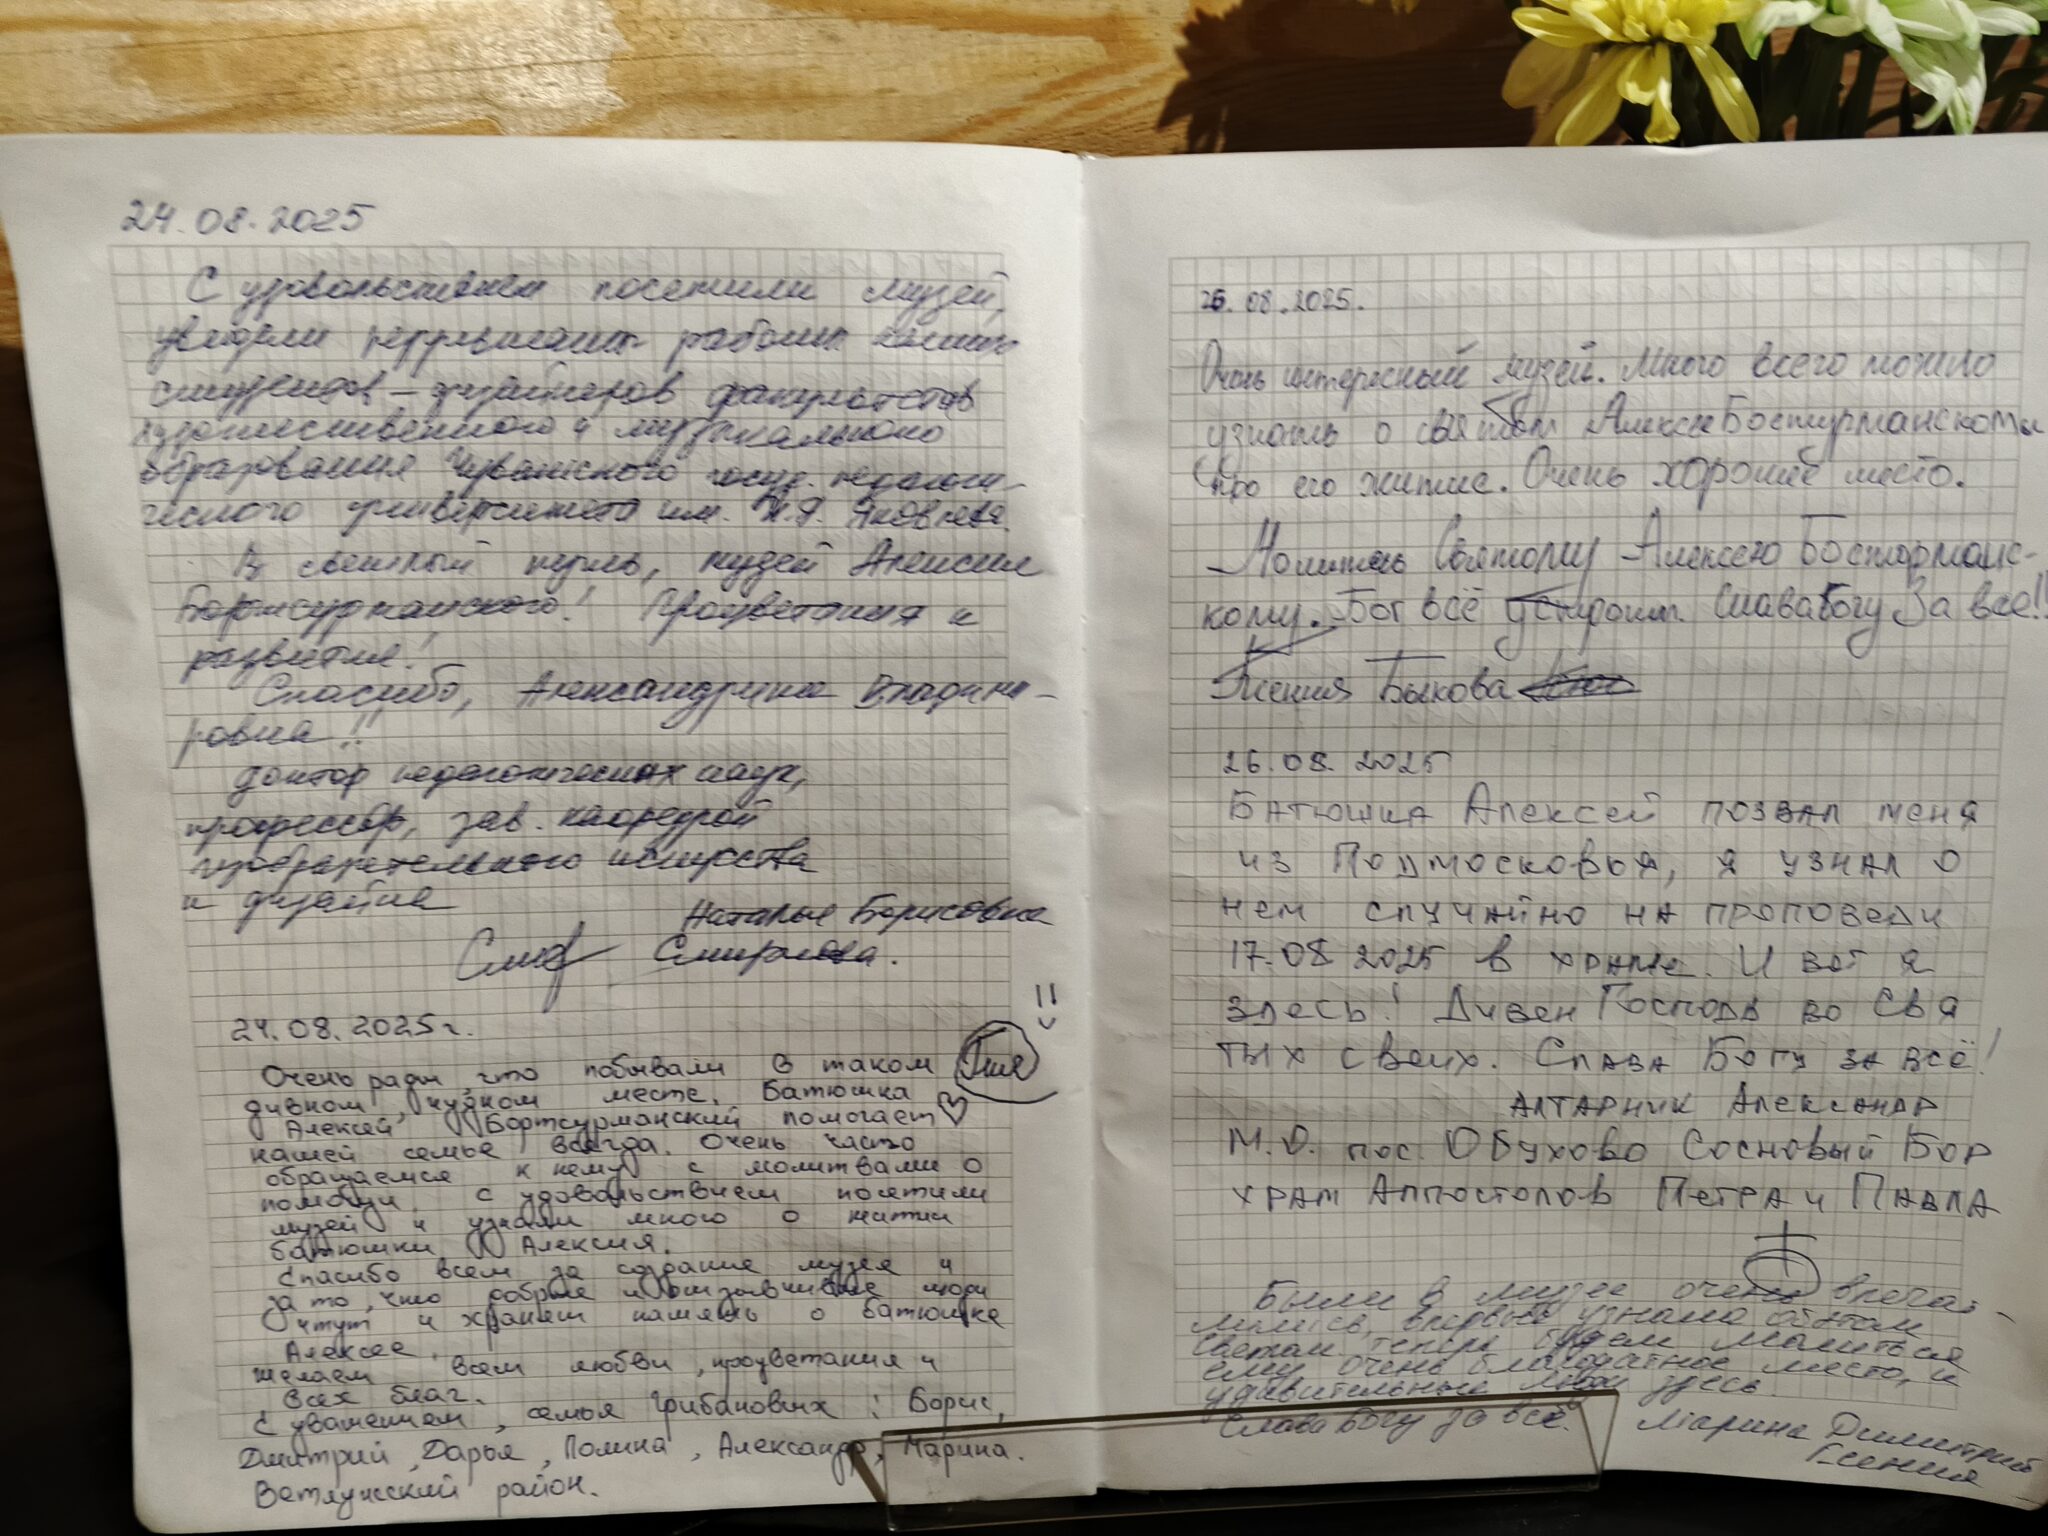 24.08.2025
С удовольствием посетили музей,
увидели результаты работы наших
студентов – дизайнеров факультета
художественного и музыкального
образования Чувашского госуд. педагоги-
ческого университета им. И.Я. Яковлева.
В светлый путь, музей Алексия
Бортсурманского! Процветания и
развития!
Спасибо, Александрина Владими-
ровна!!
доктор педагогических наук,
профессор, зав. кафедрой
изобразительного искусства
и дизайна
Наталья Борисовна
Смирнова.
24.08.2025г.
Очень рады, что побывали в таком
дивном, нужном месте. Батюшка
Алексей Бортсурманский помогает
нашей семье всегда. Очень часто
обращаемся к нему с молитвами о
помощи. С удовольствием посетили
музей и узнали много о житии
батюшки Алексия.
Спасибо всем за создание музея и
за то, что добрые и люди
чтут и хранят память о батюшке
Алексее.
Желаем всем любви, процветания и
всех благ.
С уважением, семья Грибановых: Борис,
Дмитрий, Дарья, Полина, Александр, Марина.
Ветлужский район.
26.08.2025.
Очень интересный музей. Много всего можно
узнать о святом Алексее Бостурманскому
про его житие. Очень хорошее место.
Молитесь Святому Алексею Бостурманс-
кому. Бог всё устроит. Слава Богу За все!!
Ксения Быкова
26.08.2025
Батюшка Алексей позвал меня
из Подмосковья, я узнал о
нем случайно на проповеди
17.08 2025 в храме. И вот я
здесь! Дивен Господь во Свя
тых своих. Слава Богу за всё!
Алтарник Александр
М.О. пос. Обухово Сосновый Бор
храм Аппостолов Петра и Павла
Были в музее очень впеча-
лились, впервые узнала об этом
святом теперь будем молиться
ему очень благодатное место, и
удивительные люди здесь.
Слава Богу за всё. Марина Димитрий
Ксения